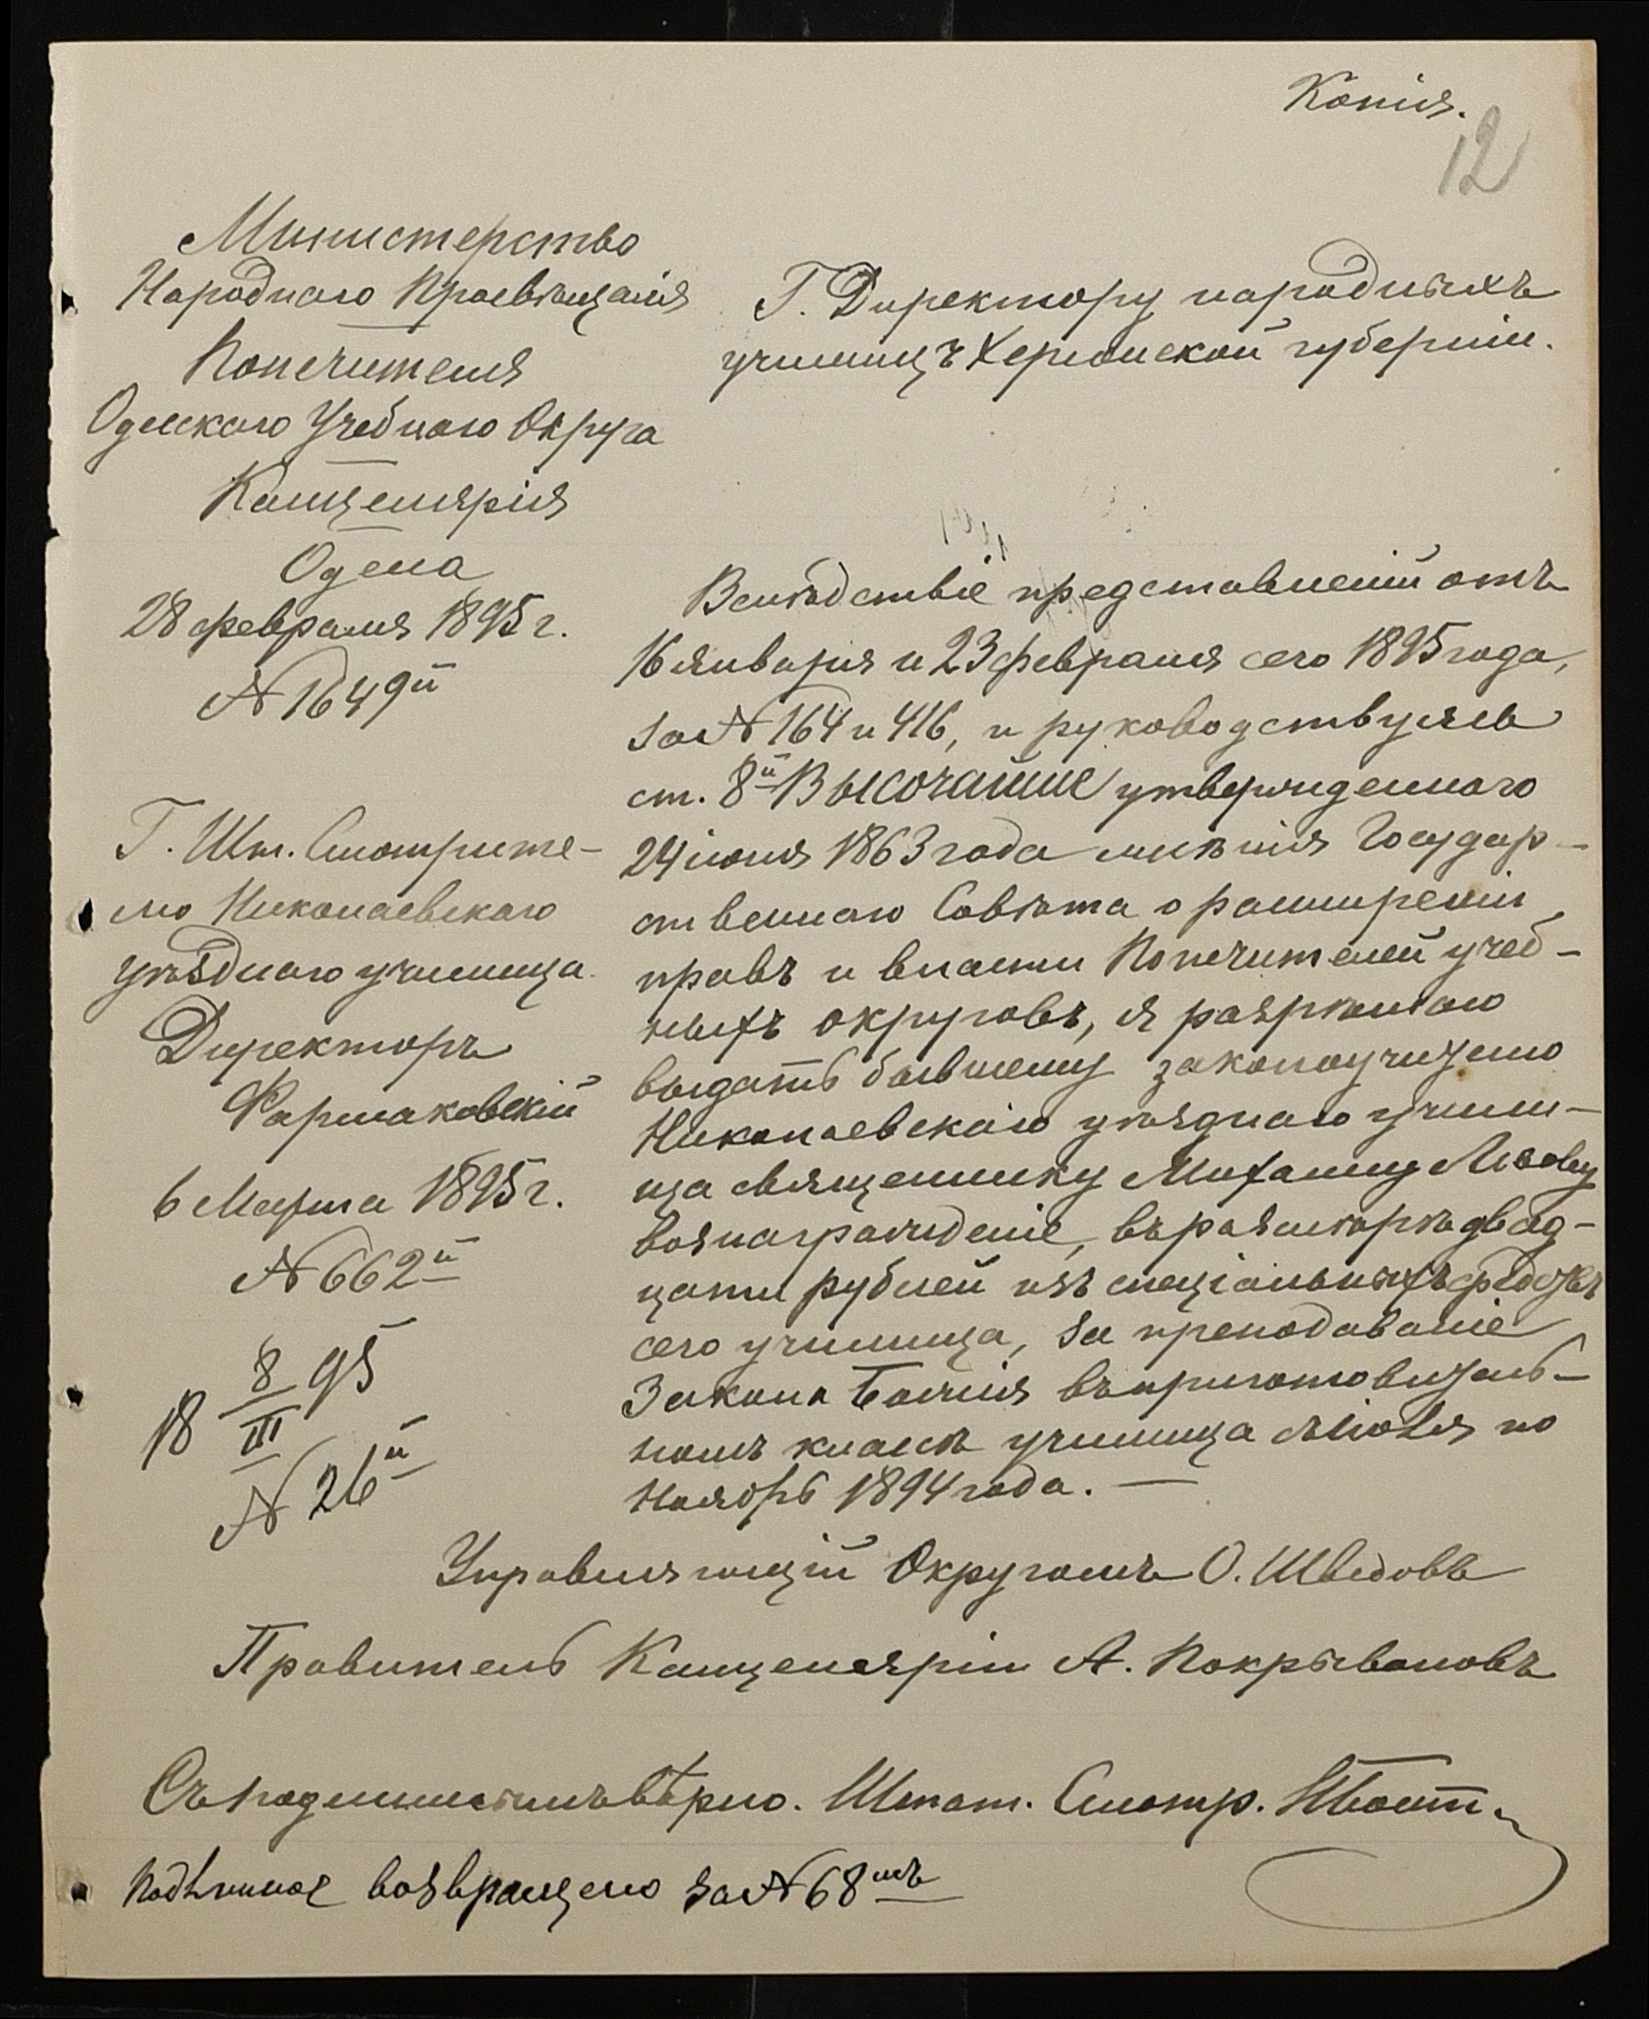 Копія.
12
Министерство
Народнаго Просвѣщенія
Попечителя
Одесскаго Учебнаго Округа
Канцелярія
Одесса
28 февраля 1895 г.
№ 1649й
Г. Шт. Смотрите-
лю Николаевскаго
уѣзднаго училища.
Директоръ
Фармаковскій
6 Марта 1895 г.
№ 662й
18 8/III 95
№ 26й
Г. Директору народныхъ
училищъ Херсонской губерніи.
Вслѣдствіе представленій отъ
16 января и 23 февраля сего 1895 года,
за № 164 и 416, и руководствуясь
ст. 8й Высочайше утвержденнаго
24 іюня 1863 года мнѣнія Государ-
ственнаго Совѣта о расширеніи
правъ и власти Попечителей учеб-
ныхъ округовъ, я разрѣшаю
выдать бывшему законоучителю
Николаевскаго уѣзднаго учили-
ща священнику Михаилу
вознагражденіе, въ размѣрѣ двад-
цати рублей изъ спеціальныхъ средствъ
сего училища, за преподаваніе
Закона Божія въ приготовитель-
номъ классѣ училища съ по
Ноябрь 1894 года. —
Управляющій Округомъ О. Шведовъ
Правитель Канцеляріи А. Покрывановъ
Съ подлиннымъ вѣрно. Штат. Смотр.
Подлинное возвращено за № 68мъ